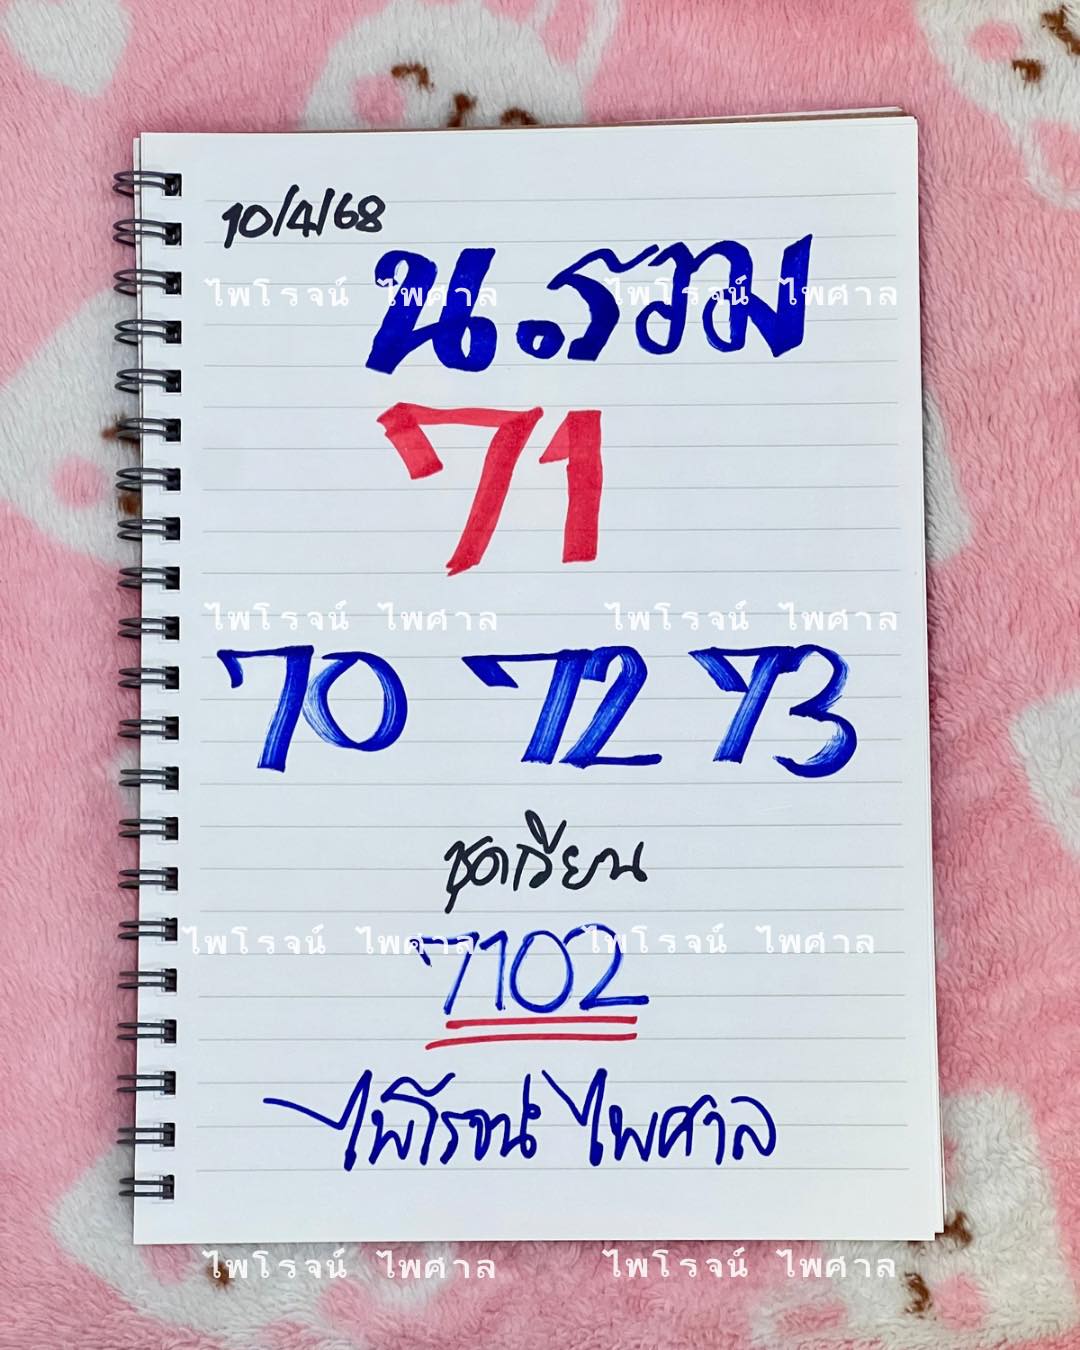 10/4/68
น.รวม
ไพโรจน์ ไพศาล ไพโรจน์ ไพศาล
71
ไพโรจน์ ไพศาล ไพโรจน์ ไพศาล
70 72 73
ชุดเวียน
ไพโรจน์ ไพศาล ไพโรจน์ ไพศาล
7102
ไพโรจน์ ไพศาล
ไพโรจน์ ไพศาล ไพโรจน์ ไพศาล